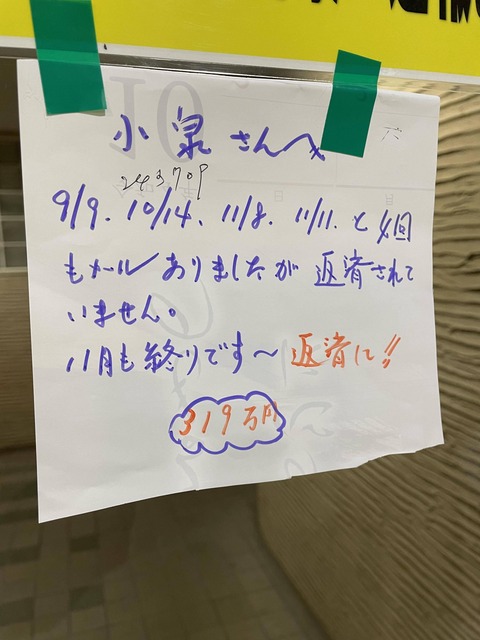 小泉さんへ
243709
9/9. 10/14、11/8. 11/11. と4回
もメールありましたが返済されて
いません。
11月も終りです〜返済に!!
319万円